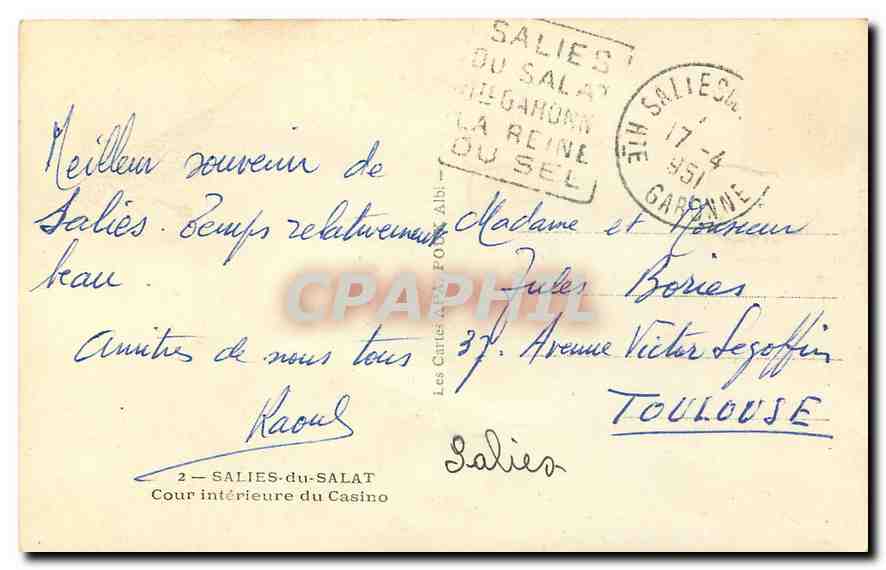 SALIES
DU SALAT
HTE GARONN
LA REINE
DU SEL
SALIES DU
17-4
951
HTE GARONNE
Meilleur souvenir de
Salies. Temps relativement
beau.
Amitiés de nous tous
Raoul
2 — SALIES-du-SALAT
Cour intérieure du Casino
Les Cartes A P A POUX Albi -
Madame et Monsieur
Jules Bories
37. Avenue Victor Segoffin
TOULOUSE
Salies
CPAPHIL